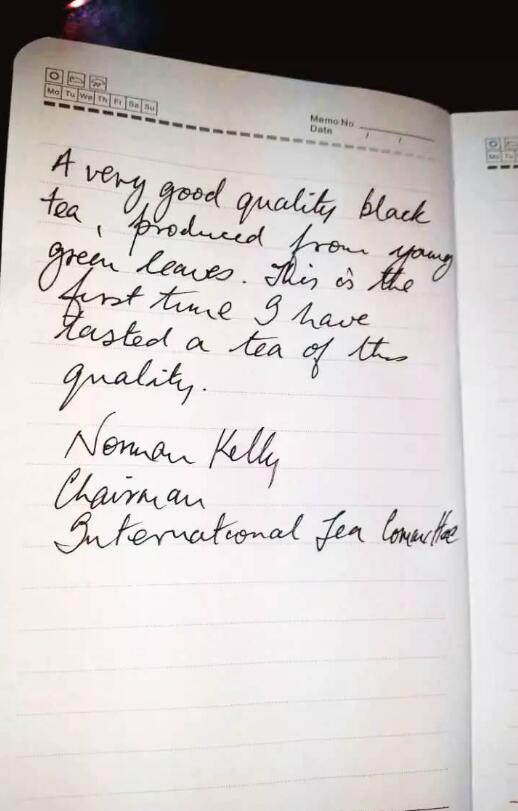 Mo Tu We Th Fr Sa Su
Memo No
Date / /
A very good quality black
tea, produced from young
green leaves. This is the
first time I have
tasted a tea of this
quality.
Norman Kelly
Chairman
International Tea Committee
Mo Tu